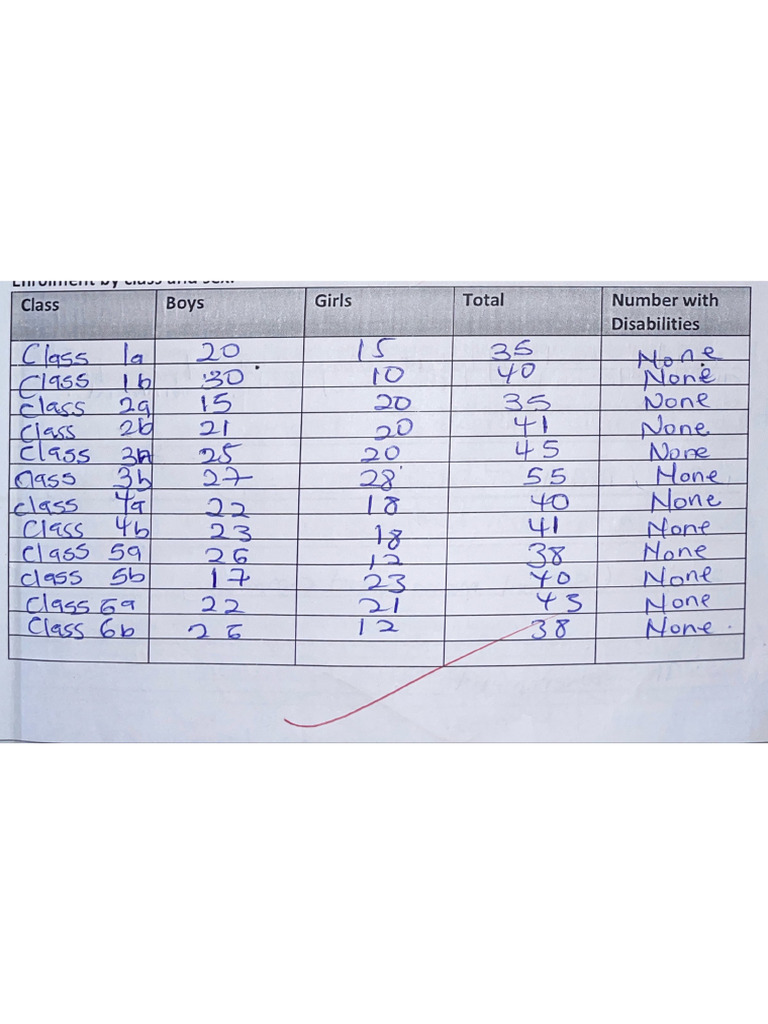 Enrolment by class and sex:
Class Boys Girls Total Number with Disabilities
Class 1a 20 15 35 None
Class 1b 30 10 40 None
Class 2a 15 20 35 None
Class 2b 21 20 41 None
Class 3a 25 20 45 None
Class 3b 27 28 55 None
class 4a 22 18 40 None
Class 4b 23 18 41 None
Class 5a 26 12 38 None
class 5b 17 23 40 None
Class 6a 22 21 43 None
Class 6b 26 12 38 None